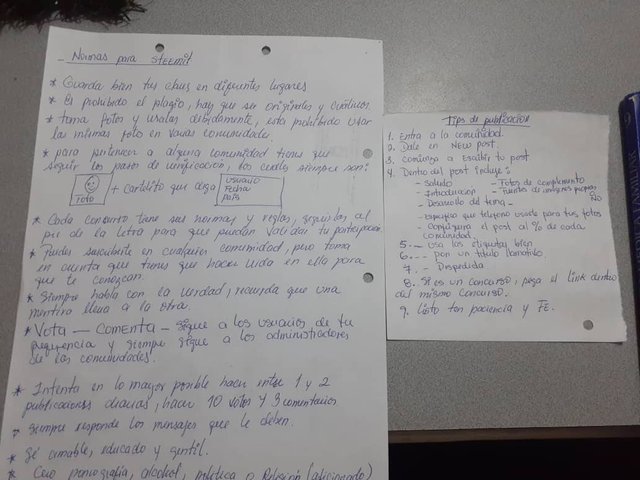 - Normas para steemit
* Guarda bien tus claves en diferentes lugares
* Es prohibido el plagio, hay que ser originales y creativos.
* toma fotos y usalas debidamente, esta prohibido usar
las mismas fotos en varias comunidades.
* para pertenecer a alguna comunidad tienes que
seguir los pasos de verificación, los cuales siempre son:
Foto + Cartelito que diga Usuario
Fecha
País
* Cada concurso tiene sus normas y reglas, seguirlas al
pie de la letra para que puedan validar tu participación
* Puedes suscribirte en cualquier comunidad, pero toma
en cuenta que tienes que hacer vida en ella para
que te conozcan.
* Siempre habla con la verdad, recuerda que una
mentira lleva a la otra.
* Vota — Comenta — sigue a los usuarios de tu
preferencia y siempre sigue a los administradores
de las comunidades.
* Intenta en lo mayor posible hacer entre 1 y 2
publicaciones diarias, hacer 10 votos y 3 comentarios
- siempre responde los mensajes que te dejen.
* Sé amable, educado y gentil.
* Cero pornografía, alcohol, política o Religión
Tips de publicación
1. Entra a la comunidad.
2. Dale en New post.
3. Comienza a escribir tu post
4. Dentro del post incluye:
- Saludo - Fotos de complemento
- Introducción - Fuentes de imágenes propias
- Desarrollo del tema - o No
- especifica que telefono usaste para tus fotos
- Configura el post al % de cada
comunidad.
5. - Usa las etiquetas bien
6. - Pon un titulo llamativo
7. - Despedida
8. Si es un concurso, pega el link dentro
del mismo concurso.
9. Listo ten paciencia y Fe.